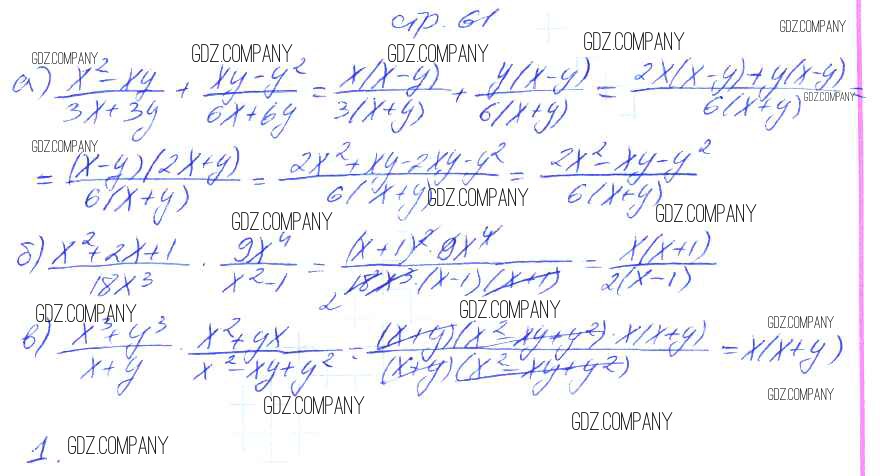 стр. 61
GDZ.COMPANY GDZ.COMPANY GDZ.COMPANY GDZ.COMPANY GDZ.COMPANY
а) (x² - xy)/(3x + 3y) + (xy - y²)/(6x + 6y) = x(x - y)/3(x + y) + y(x - y)/6(x + y) = (2x(x - y) + y(x - y))/6(x + y) =
GDZ.COMPANY
GDZ.COMPANY
= (x - y)(2x + y)/6(x + y) = (2x² + xy - 2xy - y²)/6(x + y) = (2x² - xy - y²)/6(x + y)
GDZ.COMPANY
GDZ.COMPANY GDZ.COMPANY
б) (x² + 2x + 1)/18x³ · 9x⁴/(x² - 1) = (x + 1)² · 9x⁴/2 18x³ · (x - 1)(x + 1) = x(x + 1)/2(x - 1)
GDZ.COMPANY GDZ.COMPANY GDZ.COMPANY
в) (x³ + y³)/(x + y) · (x² + yx)/(x² - xy + y²) = (x + y)(x² - xy + y²) · x(x + y)/(x + y)(x² - xy + y²) = x(x + y)
GDZ.COMPANY GDZ.COMPANY GDZ.COMPANY
1. GDZ.COMPANY